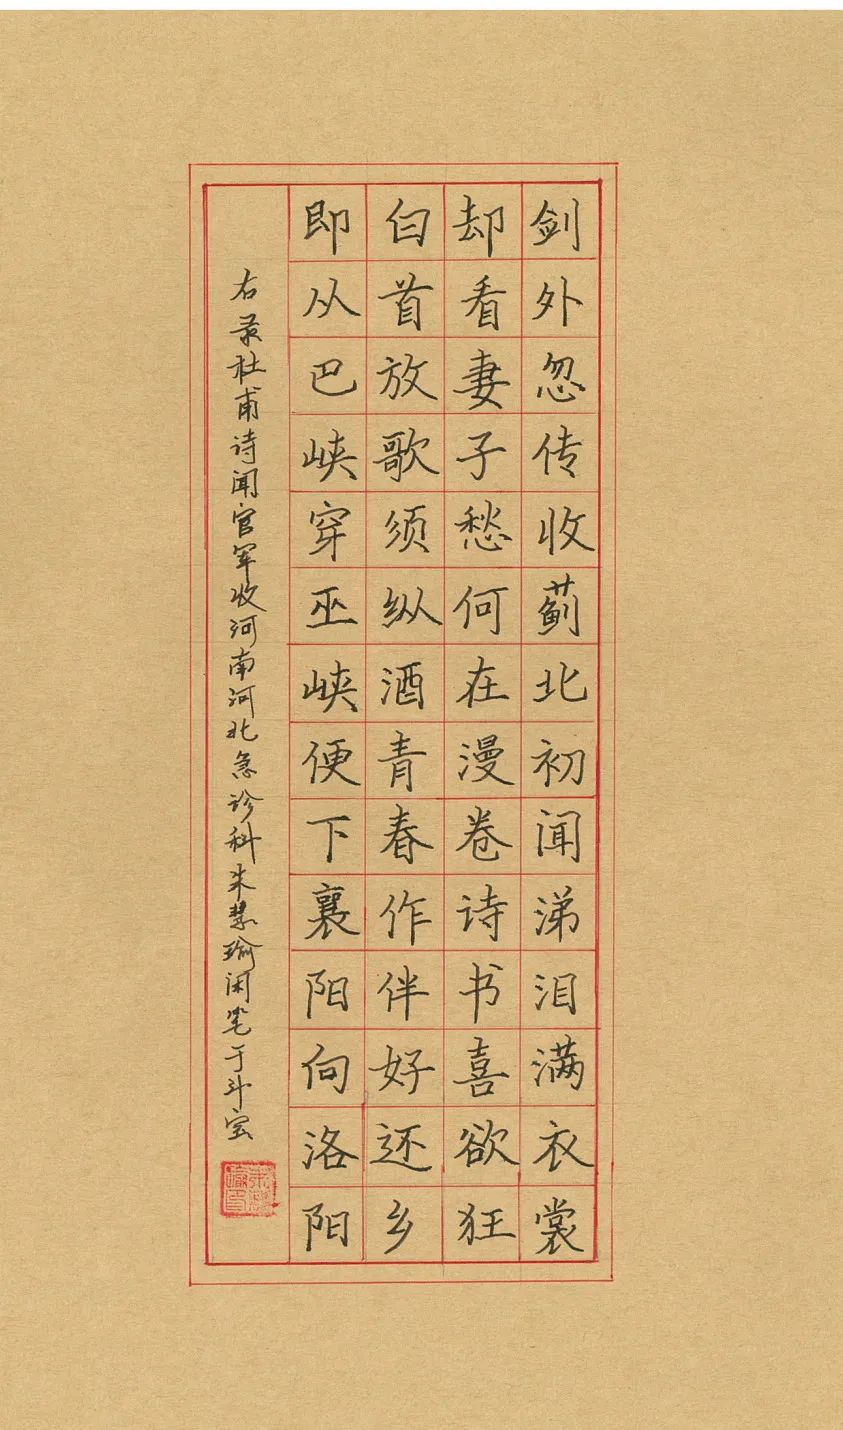 剑外忽传收蓟北初闻涕泪满衣裳
却看妻子愁何在漫卷诗书喜欲狂
白首放歌须纵酒青春作伴好还乡
即从巴峡穿巫峡便下襄阳向洛阳
右录杜甫诗闻官军收河南河北急诊科朱慧瑜闲笔于斗室